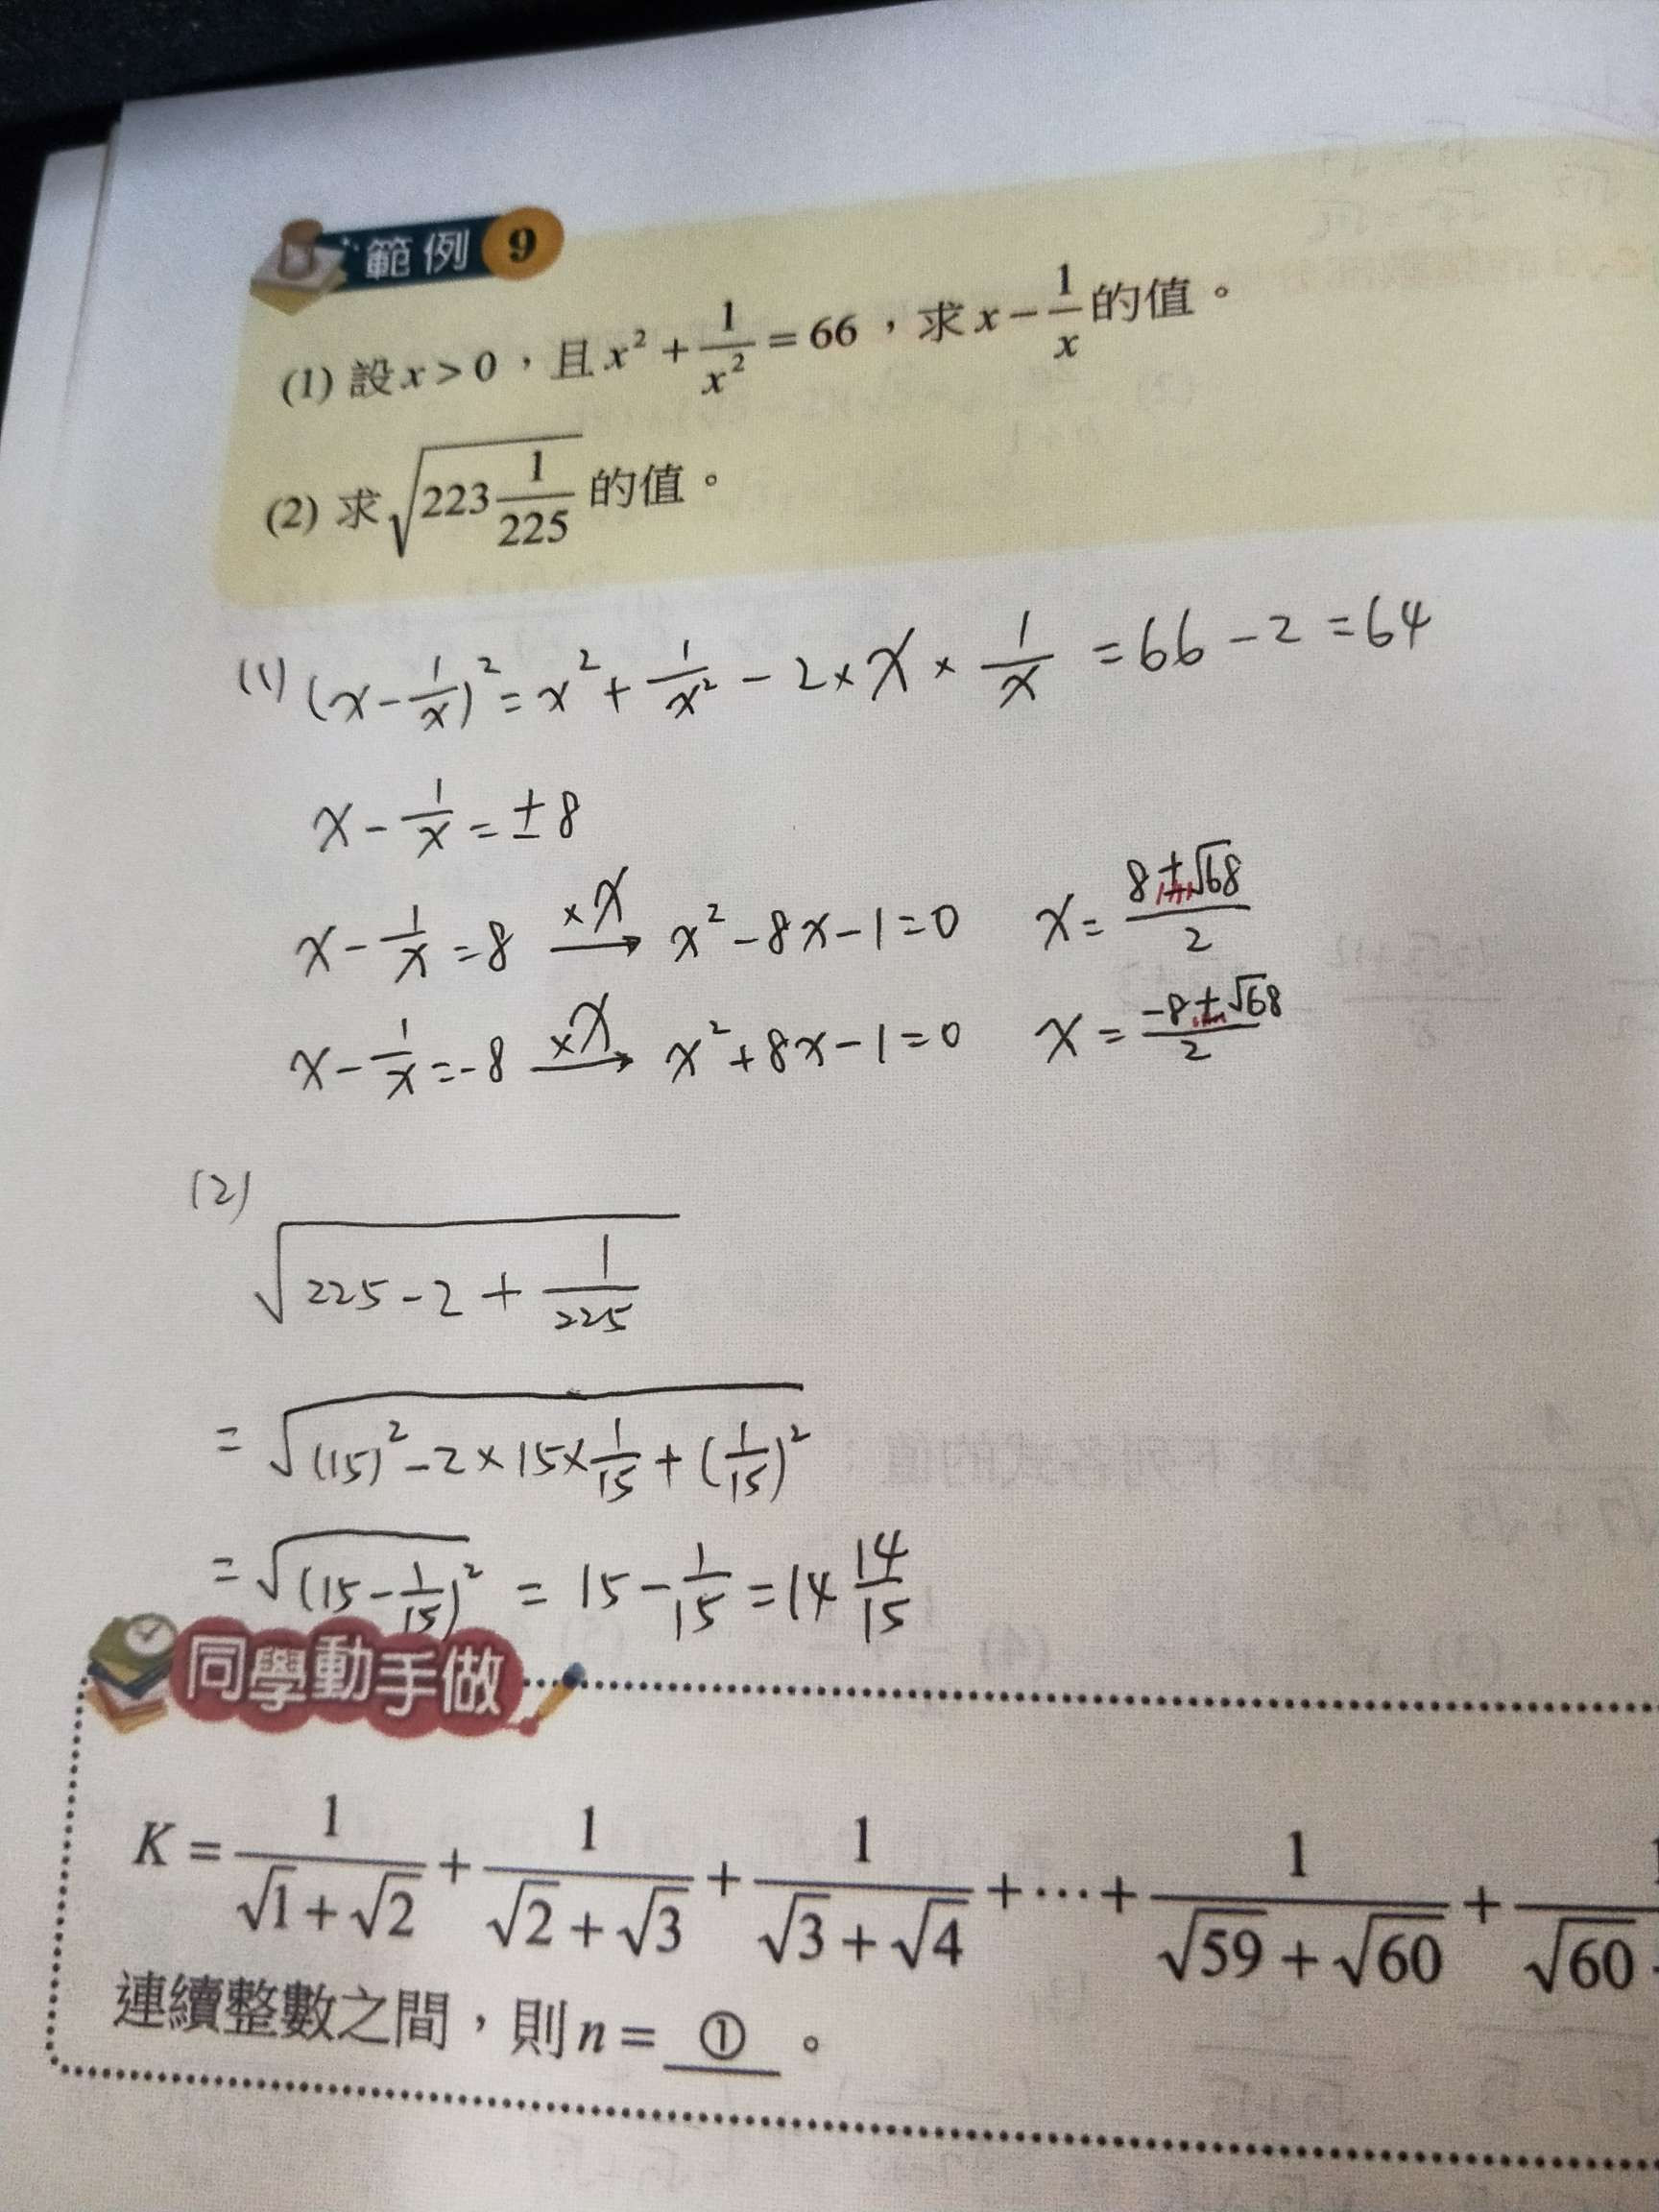 範例 9
(1) 設 x > 0，且 x² + 1/x² = 66，求 x − 1/x 的值。
(2) 求 √(223 1/225) 的值。
(1) (x − 1/x)² = x² + 1/x² − 2 × x × 1/x = 66 − 2 = 64
x − 1/x = ±8
x − 1/x = 8 ×x → x² − 8x − 1 = 0 x = (8 ± √68)/2
x − 1/x = −8 ×x → x² + 8x − 1 = 0 x = (−8 ± √68)/2
(2)
√(225 − 2 + 1/225)
= √((15)² − 2 × 15 × 1/15 + (1/15)²)
= √((15 − 1/15)²) = 15 − 1/15 = 14 14/15
同學動手做
K = 1/(√1 + √2) + 1/(√2 + √3) + 1/(√3 + √4) + ⋯ + 1/(√59 + √60) + 1/(√60
連續整數之間，則 n = ① 。